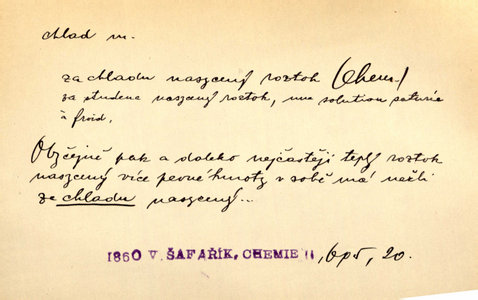 chlad m.
za chladu nasycený roztok (Chem.)
za studena nasycený roztok, une solution saturée
à froid.
Obyčejně pak a daleko nejčastěji teplý roztok
nasycený více pevné hmoty v sobě má nežli
za chladu nasycený...
1860 V. ŠAFAŘÍK, CHEMIE II, 20.